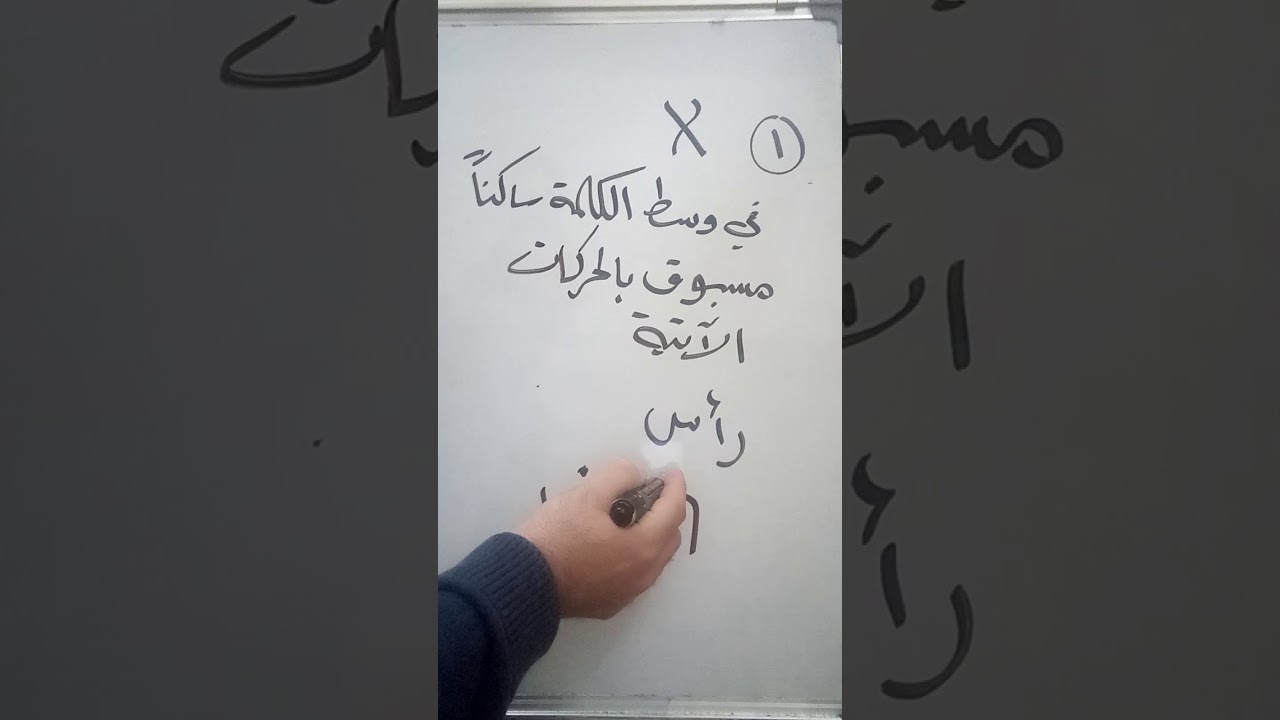 ١ X
في وسط الكلمة ساكناً
مسبوق بالحركات
الآتية
رأس